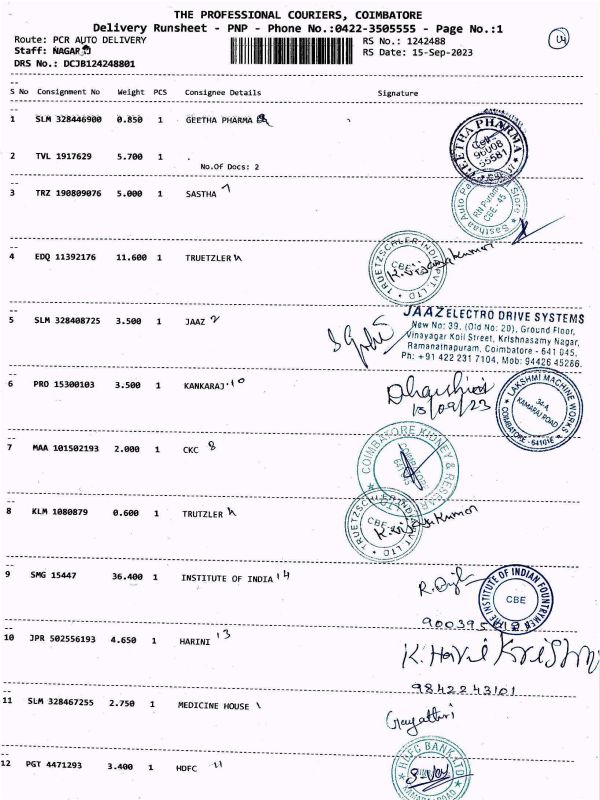 THE PROFESSIONAL COURIERS, COIMBATORE
Delivery Runsheet - PNP - Phone No.:0422-3505555 - Page No.:1
Route: PCR AUTO DELIVERY
RS No.: 1242488
Staff: NAGAR
RS Date: 15-Sep-2023
DRS No.: DCJB124248801
S No Consignment No Weight PCS Consignee Details Signature
1 SLM 328446900 0.850 1 GEETHA PHARMA
GEETHA PHARMA
96008
55581
2 TVL 1917629 5.700 1
No.Of Docs: 2
3 TRZ 190809076 5.000 1 SASTHA 7
RN Puram
CBE - 45
4 EDQ 11392176 11.600 1 TRUETZLER
CBE
5 SLM 328408725 3.500 1 JAAZ 2
JAAZ ELECTRO DRIVE SYSTEMS
New No: 39, (Old No: 20), Ground Floor,
Vinayagar Koil Street, Krishnaszmy Nagar,
Ramanathapuram, Coimbatore - 641 045.
Ph: +91 422 231 7104, Mob: 94426 45286.
6 PRO 15300103 3.500 1 KANKARAJ 10
15/09/23
LAKSHMI MACHINE WORKS
34-A
KAMARAJ ROAD
7 MAA 101502193 2.000 1 CKC 8
COIMBATORE KIDNEY & RESEAR
8 KLM 1080879 0.600 1 TRUTZLER
K.vijayakumar
CBE
9 SMG 15447 36.400 1 INSTITUTE OF INDIA 14
THE INSTITUTE OF INDIAN FOUNDRYMEN
CBE
10 JPR 502556193 4.650 1 HARINI 13
K. Hari Krishn
9842243101
11 SLM 328467255 2.750 1 MEDICINE HOUSE
Gayathri
12 PGT 4471293 3.400 1 HDFC 11
HDFC BANK LTD